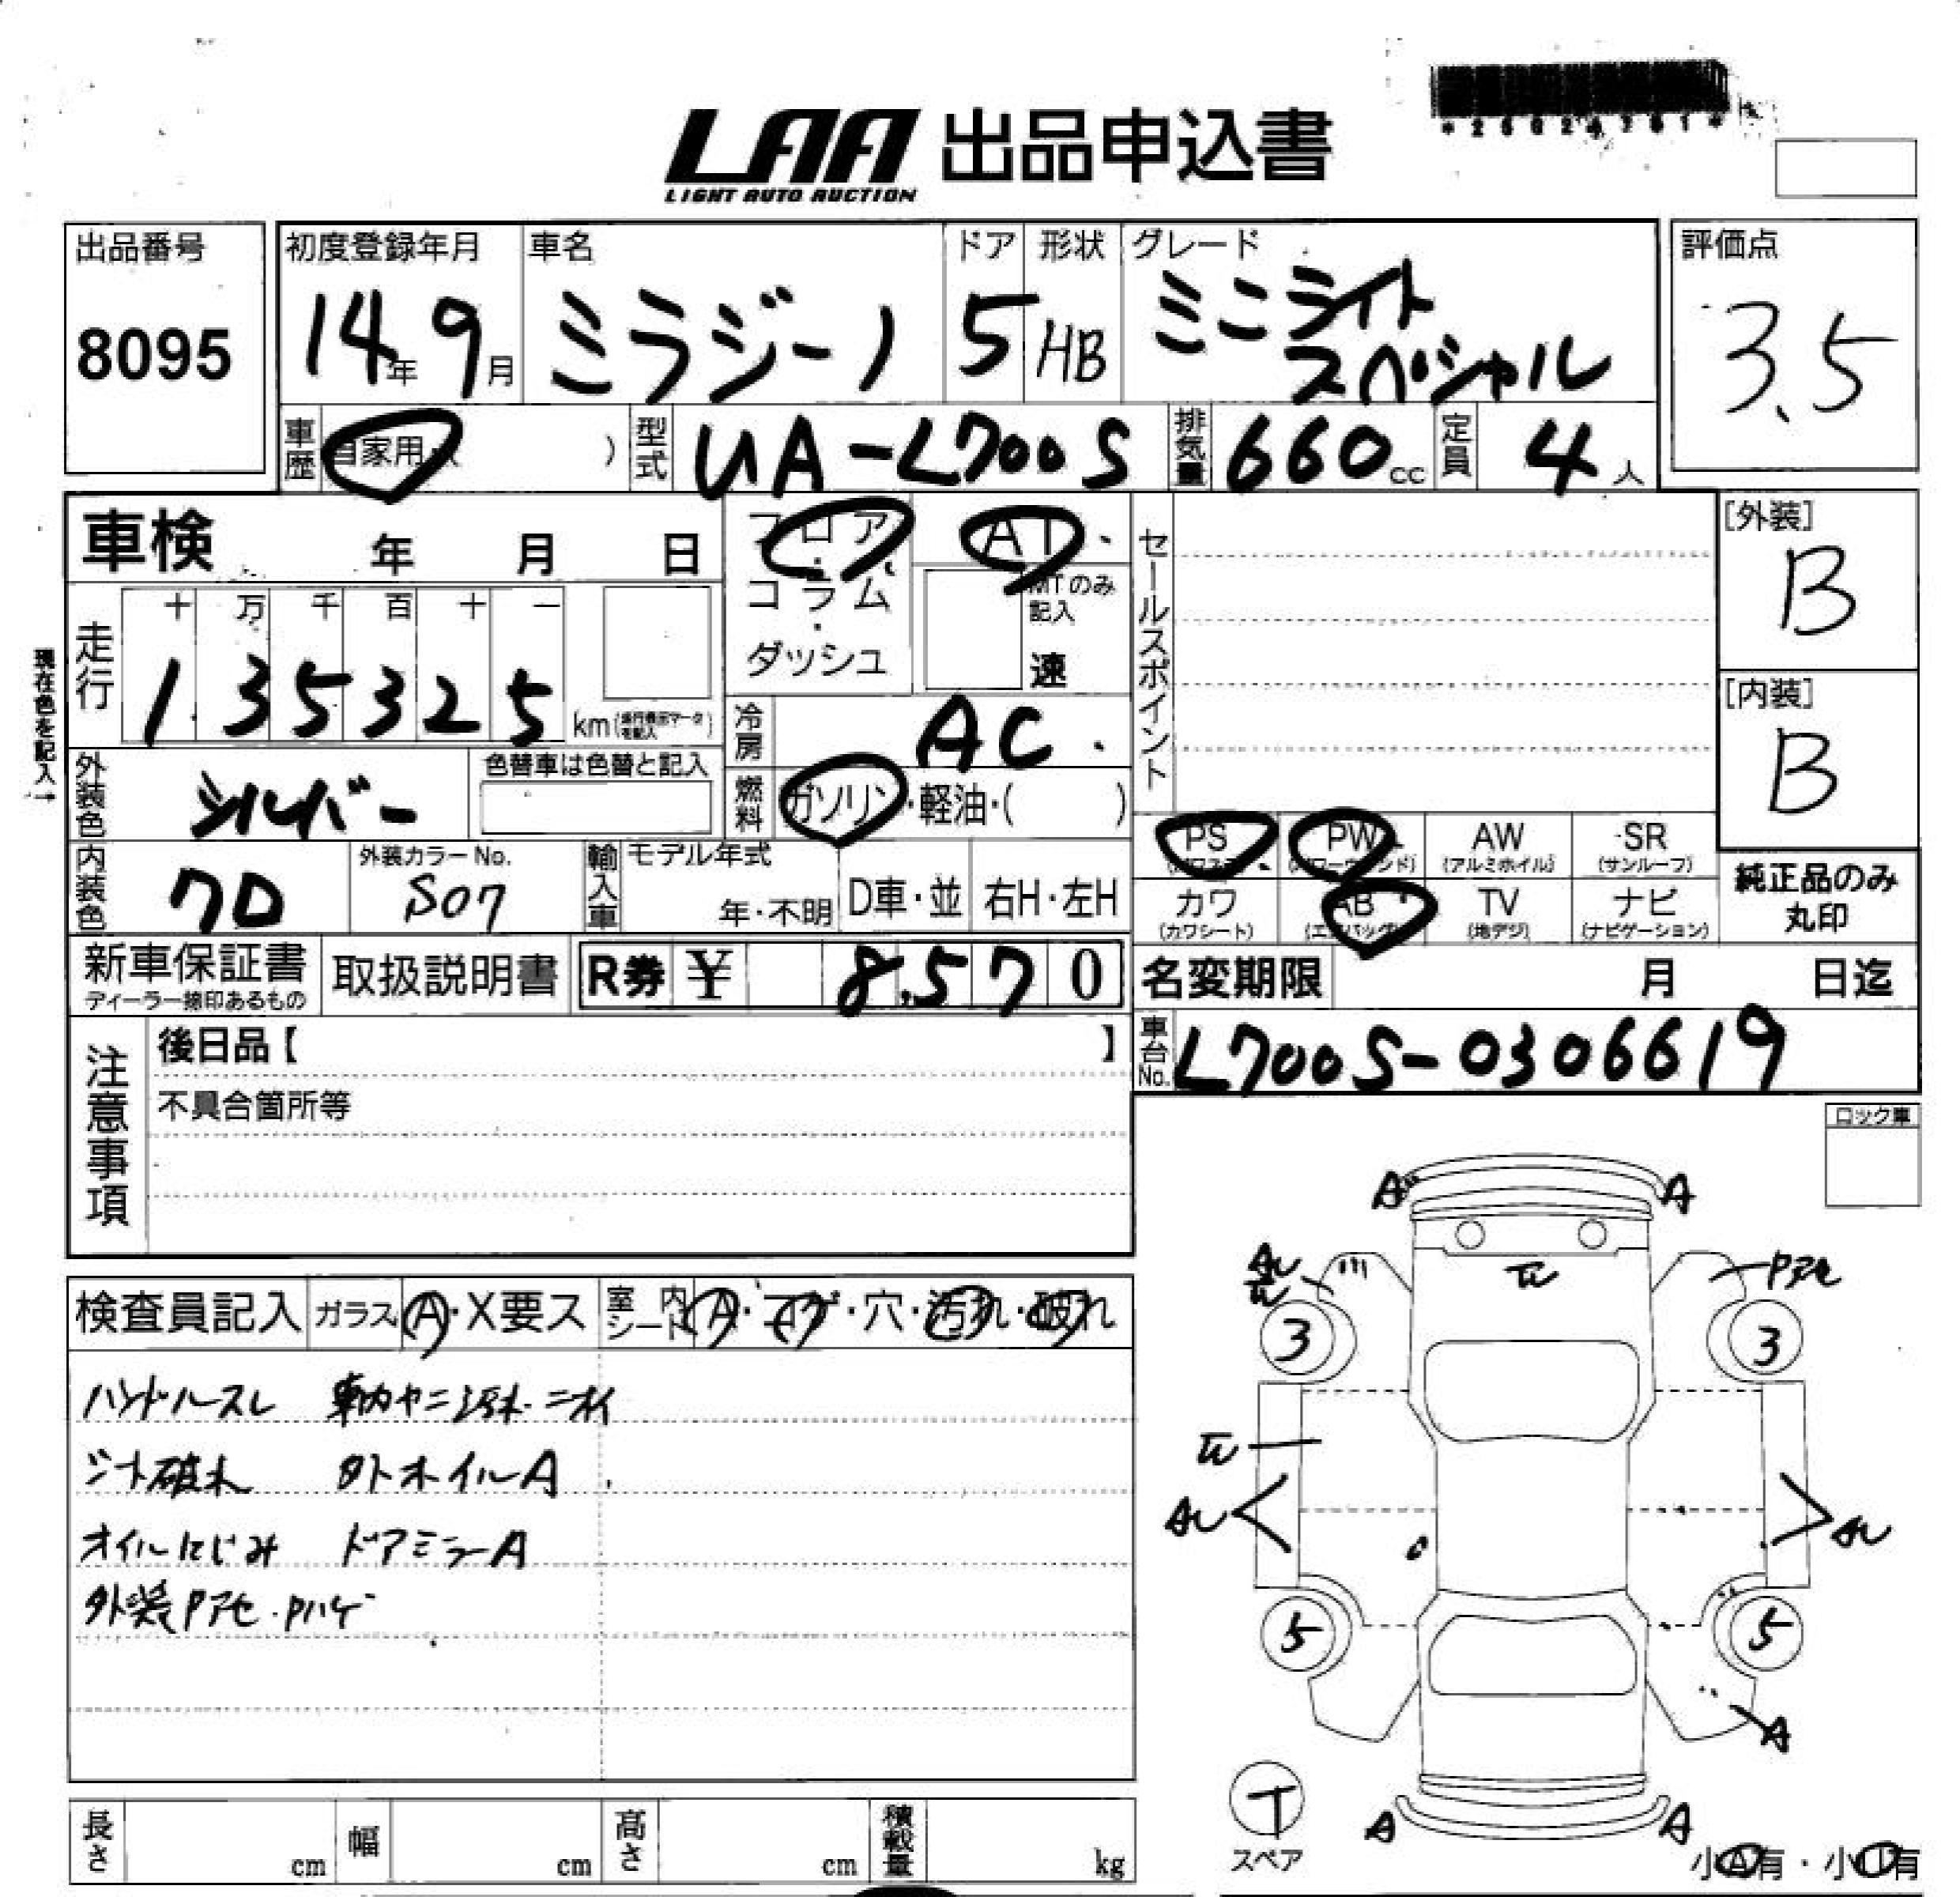 LAA 出品申込書
LIGHT AUTO AUCTION
*25024761*
出品番号 初度登録年月 車名 ドア 形状 グレード 評価点
8095 14年 9月 ミラジーノ 5 HB ミニライト
スペシャル 3.5
車歴 自家用 ) 型式 UA-L700S 排気量 660cc 定員 4人
車検 年 月 日 フロア・ AT・ セールスポイント [外装]
コラム・ MTのみ記入 B
ダッシュ 速
走行 十 万 千 百 十 一
135325 km(走行表示マークを記入) 冷房 AC. [内装]
現在色を記入→
外装色 シルバー 色替車は色替と記入 燃料 ガソリン・軽油・( ) B
PS PW AW(アルミホイル) SR(サンルーフ)
内装色 7D 外装カラーNo. S07 輸入車 モデル年式 年・不明 D車・並 右H・左H
カワ(カワシート) AB(エアバッグ) TV(地デジ) ナビ(ナビゲーション) 純正品のみ丸印
新車保証書 ディーラー捺印あるもの 取扱説明書 R券 ¥ 8,570 名変期限 月 日迄
注意事項 後日品【 】 車台No. L700S-0306619
不具合箇所等
ロック車
A A
検査員記入 ガラス A・X要ス 室内シート A・コゲ・穴・汚れ・破れ
Pアセ
3 3
ハンドルスレ 車内ヤニ汚れ・ニオイ
シート破れ 外ホイルA
オイルにじみ ドアミラーA
外装Pアセ・Pハゲ
5 5
A
T
スペア
A A
小A有・小U有
長さ cm 幅 cm 高さ cm 積載量 kg